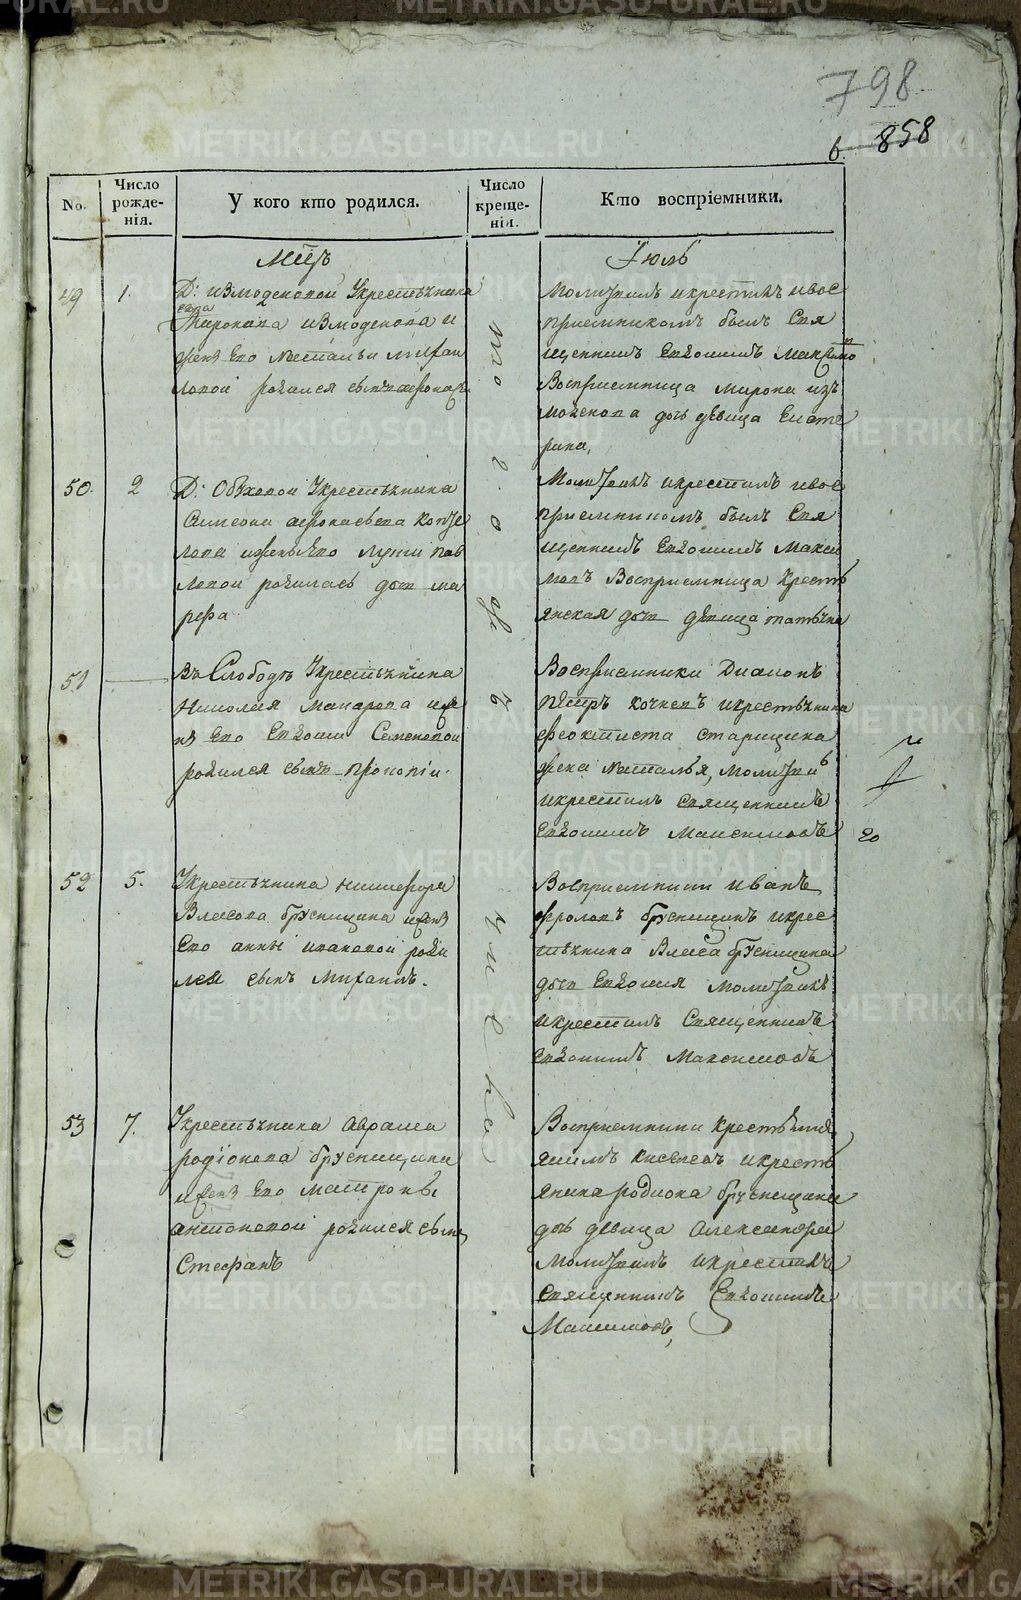 798
858
No.
Число рожде-нія.
У кого кто родился.
Число креще-нія.
Кто воспріемники.
Мцъ
Іюль
49
1.
Д: Измоденовой Укрестьянина
Мирона измоденова и
жены Его Натальи михаи
ловой родился сынъ
Молитвилъ икрестилъ ивос
приемникомъ былъ Свя
щенникъ Евдокимъ Максимо
Восприемница мирона из
моденова дочь девица Екате
рина,
того
ж
числа
50.
2
Д: Обуховой Укрестьянина
Симеона
лова иженыЕго пав
ловой родилась дочь ма
рефа
Молитвилъ икрестилъ ивос
приемникомъ былъ Свя
щенникъ Евдокимъ Макси
мовъ Восприемница Кресть
янская дочь девица татьяна
51
Въ Слободе Укрестьянина
Николая Макарова иже
ны Его Семеновой
родился сынъ Прокопіи.
Восприемники Диаконъ
петръ икрестьянина
феоктиста старицина
жена Наталья, Молитвилъ
икрестилъ священникъ
Евдокимъ Максимовъ
20
52
5.
Укрестьянина никифора
Власова брусницина ижены
Его анны ивановой роди
лся сынъ Михаилъ.
Восприемники иванъ
фроловъ брусницинъ икрес
тьянина Власа брусницина
дочь Евдокия Молитвилъ
икрестилъ Священникъ
Евдокимъ Максимовъ
53
7.
Укрестьянина Аврама
родіонова брусницина
ижены Его Матроны
антоновой родился сынъ
Стефанъ
Восприемники Крестьянинъ
якимъ икресть
янина родиона брусницина
дочь девица Александра
Молитвилъ икрестилъ
священникъ Евдокимъ
Максимовъ,
METRIKI.GASO-URAL.RU